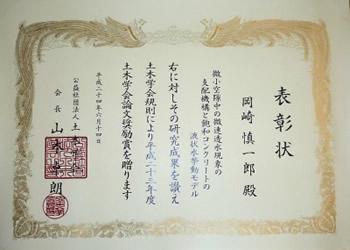 表彰状
岡崎慎一郎殿
微小空隙中の微速透水現象の
支配機構と飽和コンクリートの
液状水挙動モデル
右に対しその研究成果を讃え
土木学会規則により平成二十三年度
土木学会論文奨励賞を贈ります
平成二十四年六月十四日
公益社団法人 土木学会
会長 山本卓朗